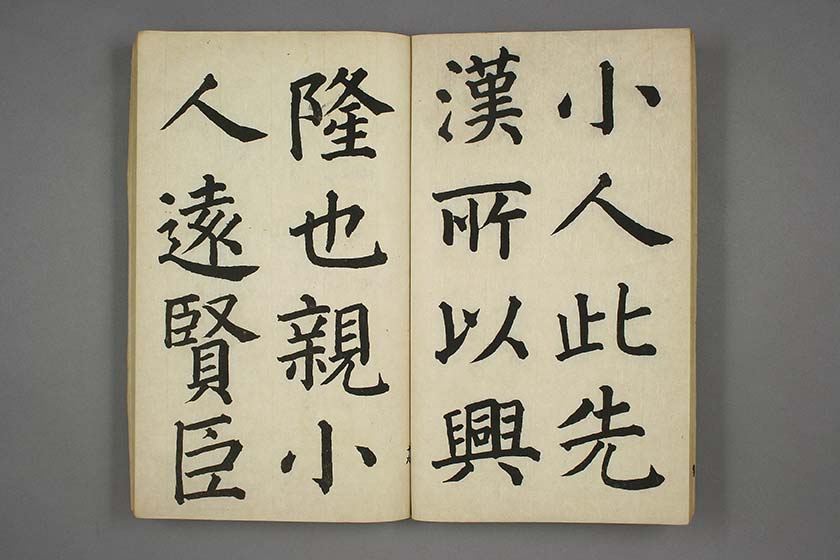 小人此先
漢所以興
隆也親小
人遠賢臣